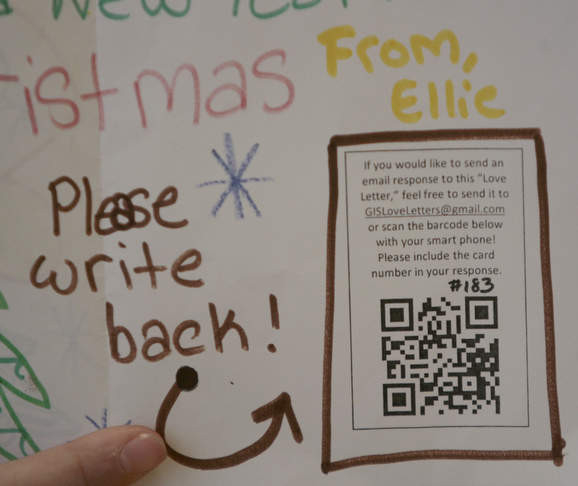 New
istmas
From,
Ellie
Please
write
back!
If you would like to send an
email response to this "Love
Letter," feel free to send it to
GISLoveLetters@gmail.com
or scan the barcode below
with your smart phone!
Please include the card
number in your response.
#183